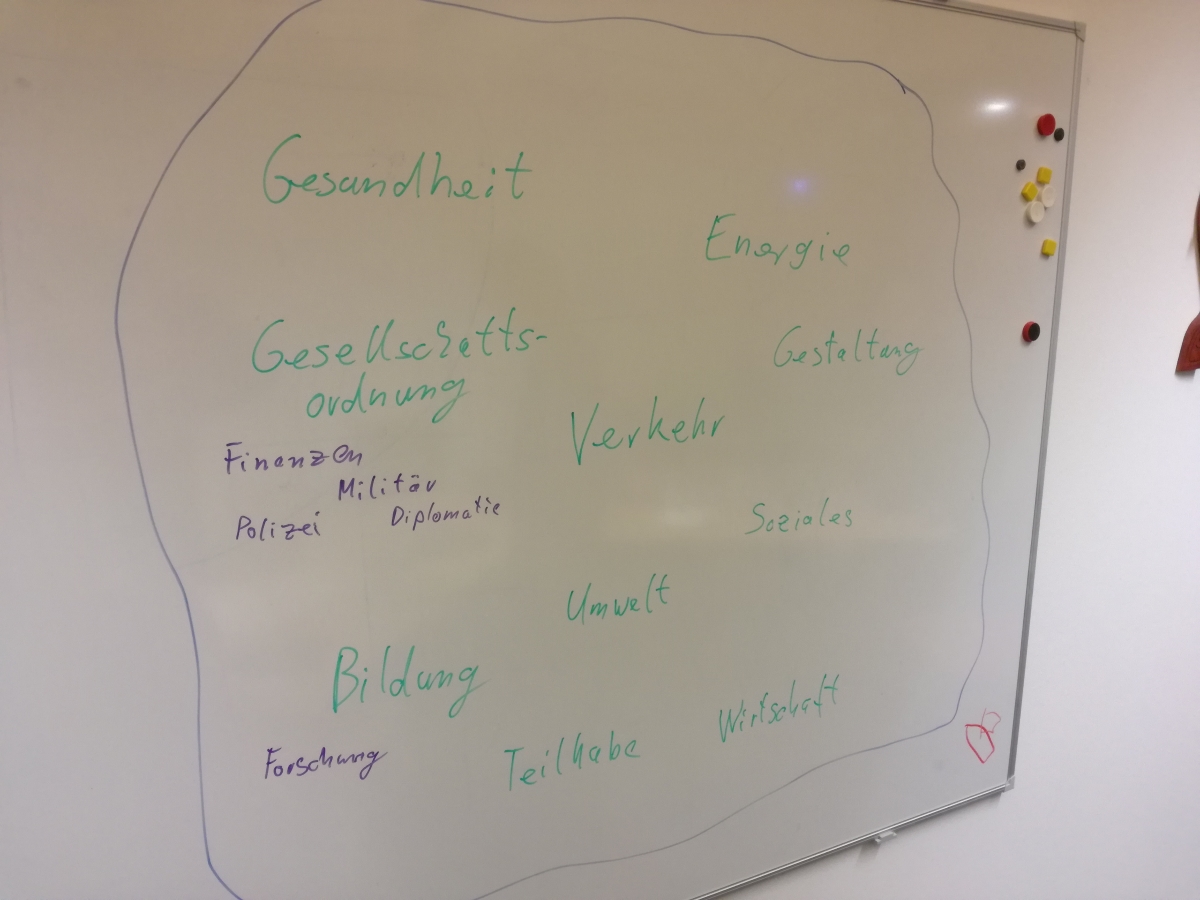 Gesundheit
Energie
Gesellschafts-
ordnung
Gestaltung
Verkehr
Finanzen
Militär
Polizei
Diplomatie
Soziales
Umwelt
Bildung
Wirtschaft
Forschung
Teilhabe